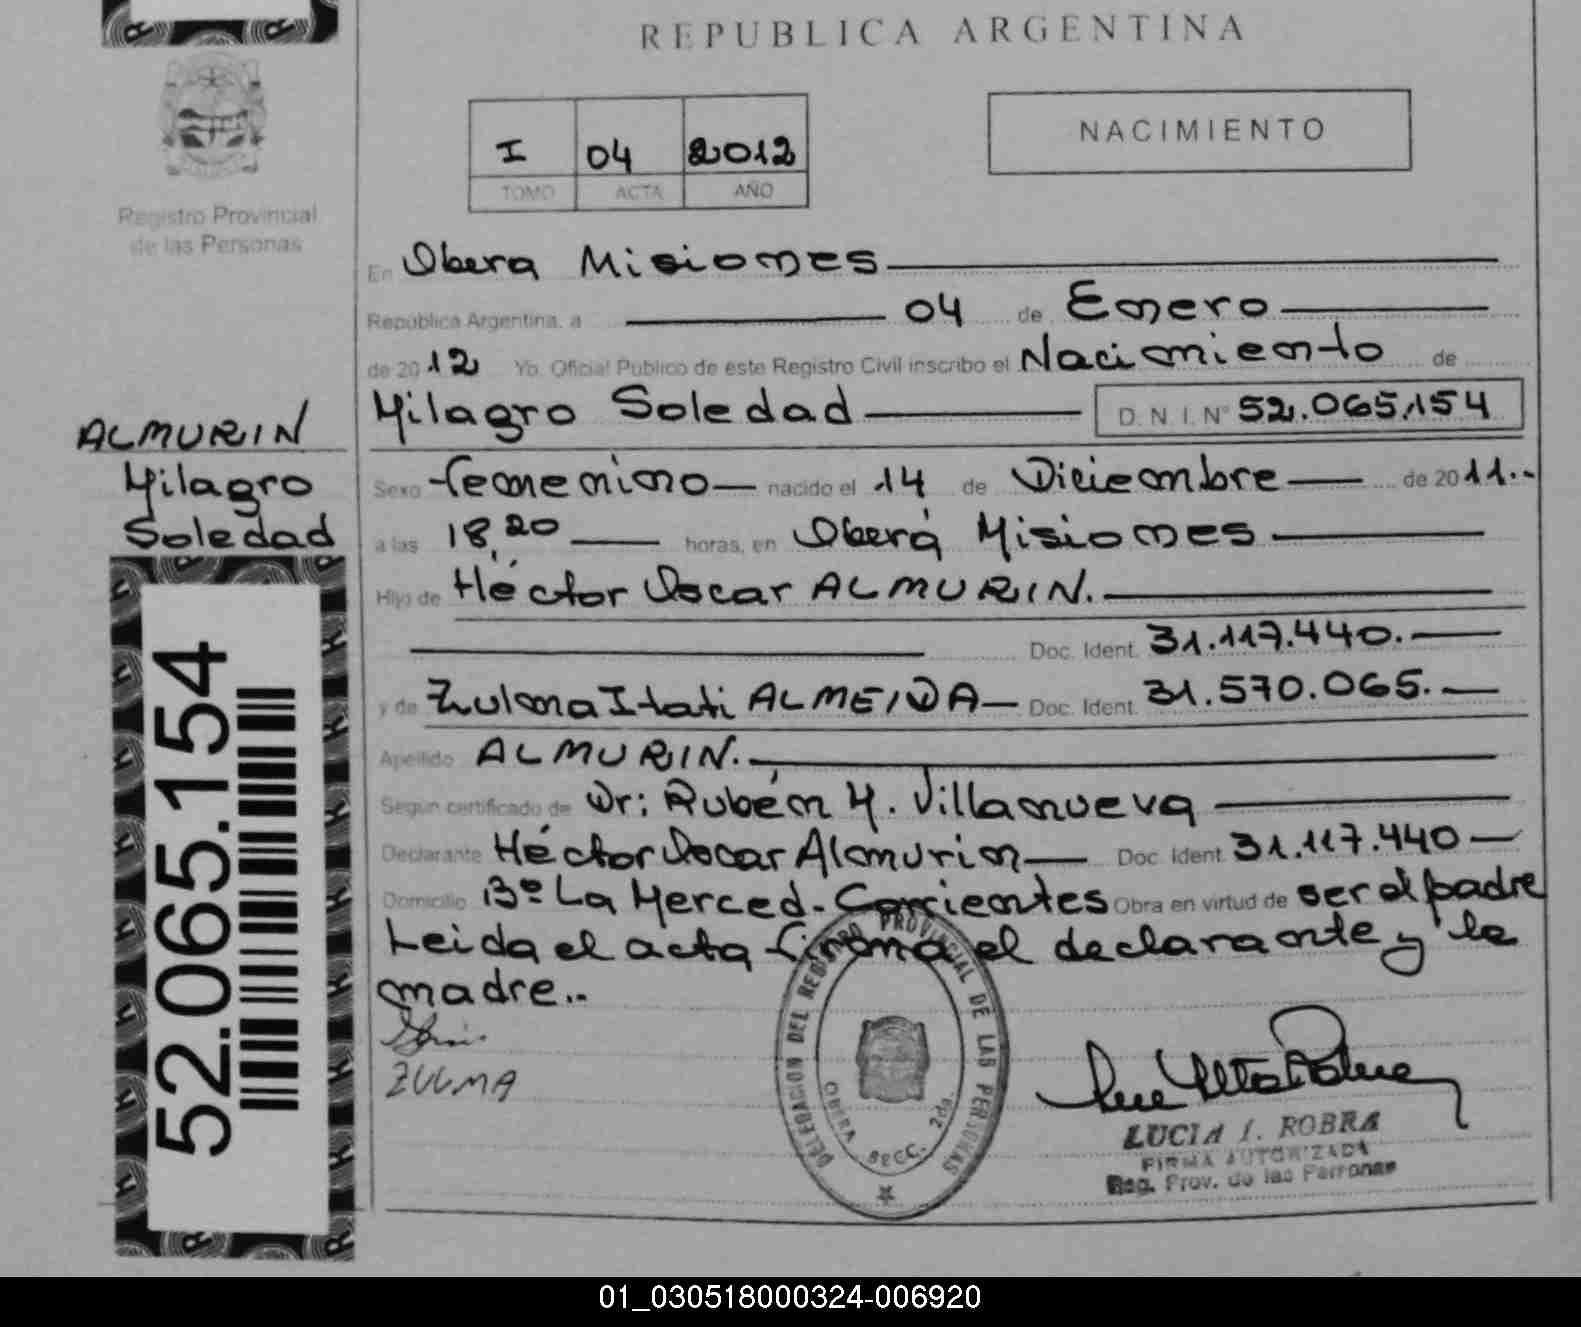 REPUBLICA ARGENTINA
I 04 2012
TOMO ACTA AÑO
NACIMIENTO
Registro Provincial
de las Personas
En Obera Misiones
República Argentina, a 04 de Enero
de 2012 Yo, Oficial Público de este Registro Civil inscribo el Nacimiento de
Milagro Soledad D. N. I. N° 52.065.154
ALMURIN
Milagro
Soledad
Sexo femenino nacido el 14 de Diciembre de 2011.-
a las 18,20 horas, en Oberá Misiones
Hijo de Héctor Oscar ALMURIN.
Doc. Ident. 31.117.440.
y de Zulma Itati ALMEIDA Doc. Ident. 31.570.065.
Apellido ALMURIN.
Según certificado de Dr: Rubén M. Villanueva
Declarante Héctor Oscar Almurin Doc. Ident. 31.117.440
Domicilio Bº La Merced - Corrientes Obra en virtud de ser el padre
Leida el acta firma el declarante y la
madre..
ZULMA
52.065.154
DELEGACION DEL REGISTRO PROVINCIAL DE LAS PERSONAS
OBERA SECC. 2da.
LUCIA I. ROBRA
FIRMA AUTORIZADA
Reg. Prov. de las Personas
01_030518000324-006920